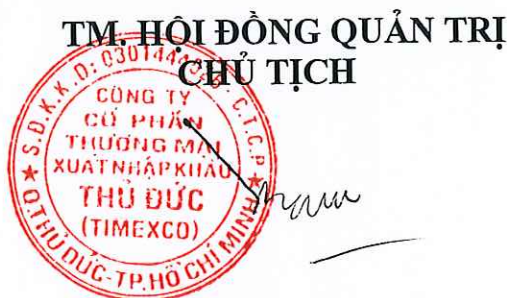 TM. HỘI ĐỒNG QUẢN TRỊ
CHỦ TỊCH
S.Đ.K.K.D: - C.T.C.P
CÔNG TY
CỔ PHẦN
THƯƠNG MẠI
XUẤT NHẬP KHẨU
THỦ ĐỨC
(TIMEXCO)
Q.THỦ ĐỨC-TP.HỒ CHÍ MINH